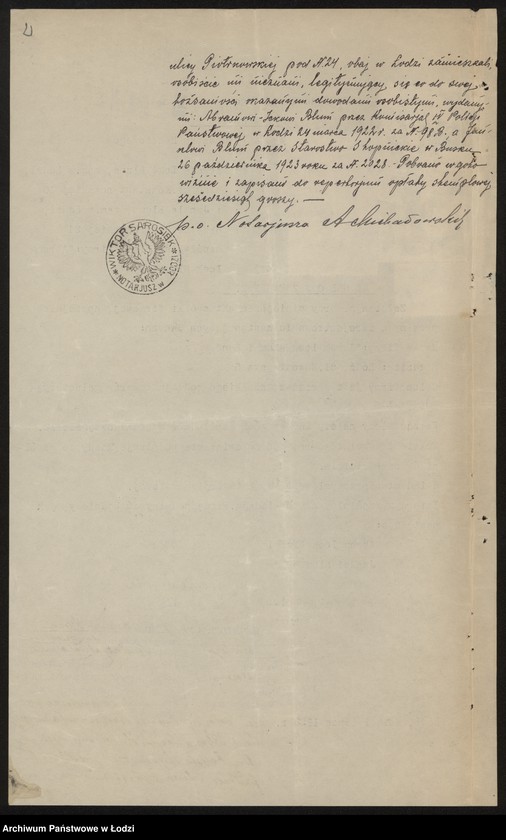 ulicy Piotrkowskiej pod № 24, obaj w Łodzi zamieszkali,
osobiście mi nieznani, legitymujący się co do swej
tożsamości okazanymi dowodami osobistymi, wydany-
mi: Abramowi-Jckowi Blum przez Komisarjat IV Policji
Państwowej w Łodzi 24 marca 1922 r. za №
Blum przez Starostwo Stopnickie w Busku
26 października 1923 roku za № 2028. Pobrano w goto-
wiźnie i zapisano do repertorjum opłaty stemplowej
sześćdziesiąt groszy. —
p.o. Notarjusza A Michałowski
WIKTOR SAROSIEK
NOTARJUSZ w ŁODZI
Archiwum Państwowe w Łodzi